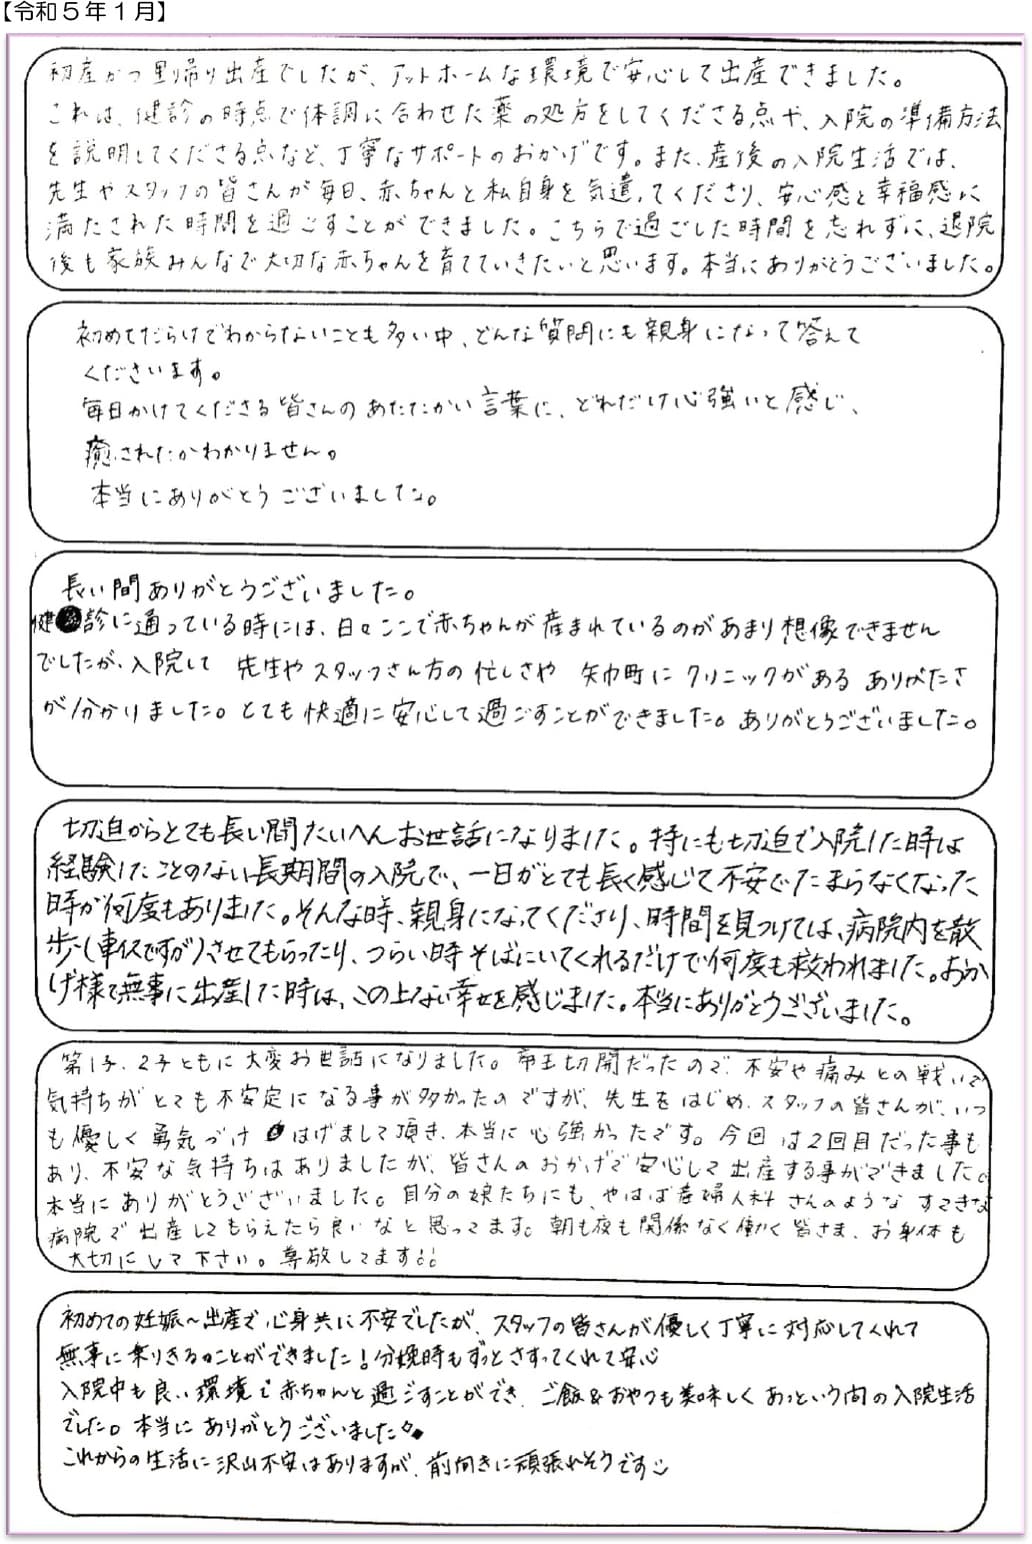 【令和５年１月】
初産かつ里帰り出産でしたが、アットホームな環境で安心して出産できました。
これは、健診の時点で体調に合わせた薬の処方をしてくださる点や、入院の準備方法
を説明してくださる点など、丁寧なサポートのおかげです。また、産後の入院生活では、
先生やスタッフの皆さんが毎日、赤ちゃんと私自身を気遣ってくださり、安心感と幸福感に
満たされた時間を過ごすことができました。こちらで過ごした時間を忘れずに、退院
後も家族みんなで大切な赤ちゃんを育てていきたいと思います。本当にありがとうございました。
初めてだらけでわからないことも多い中、どんな質問にも親身になって答えて
くださいます。
毎日かけてくださる皆さんのあたたかい言葉に、どれだけ心強いと感じ、
癒されたかわかりません。
本当にありがとうございました。
長い間ありがとうございました。
健診に通っている時には、日々ここで赤ちゃんが産まれているのがあまり想像できません
でしたが、入院して 先生やスタッフさん方の忙しさや 矢巾町にクリニックがあるありがたさ
が分かりました。とても快適に安心して過ごすことができました。ありがとうございました。
切迫からとても長い間たいへんお世話になりました。特にも切迫で入院した時は
経験したことのない長期間の入院で、一日がとても長く感じて不安でたまらなくなった
時が何度もありました。そんな時、親身になってくださり、時間を見つけては、病院内を散
歩（車イスですが）させてもらったり、つらい時そばにいてくれるだけで何度も救われました。おか
げ様で無事に出産した時は、この上ない幸せを感じました。本当にありがとうございました。
第1子、2子ともに大変お世話になりました。帝王切開だったので、不安や痛みとの戦いで
気持ちがとても不安定になる事が多かったのですが、先生をはじめ、スタッフの皆さんが、いつ
も優しく勇気づけ はげまして頂き、本当に心強かったです。今回は2回目だった事も
あり、不安な気持ちはありましたが、皆さんのおかげで安心して出産する事ができました。
本当にありがとうございました。自分の娘たちにも、やはば産婦人科さんのようなすてきな
病院で出産してもらえたら良いなと思ってます。朝も夜も関係なく働く皆さま、お身体も
大切にして下さい。尊敬してます!!
初めての妊娠～出産で心身共に不安でしたが、スタッフの皆さんが優しく丁寧に対応してくれて
無事に乗りきることができました！分娩時もずっとさすってくれて安心
入院中も良い環境で赤ちゃんと過ごすことができ、ご飯&おやつも美味しくあっという間の入院生活
でした。本当にありがとうございました
これからの生活に沢山不安はありますが、前向きに頑張れそうです